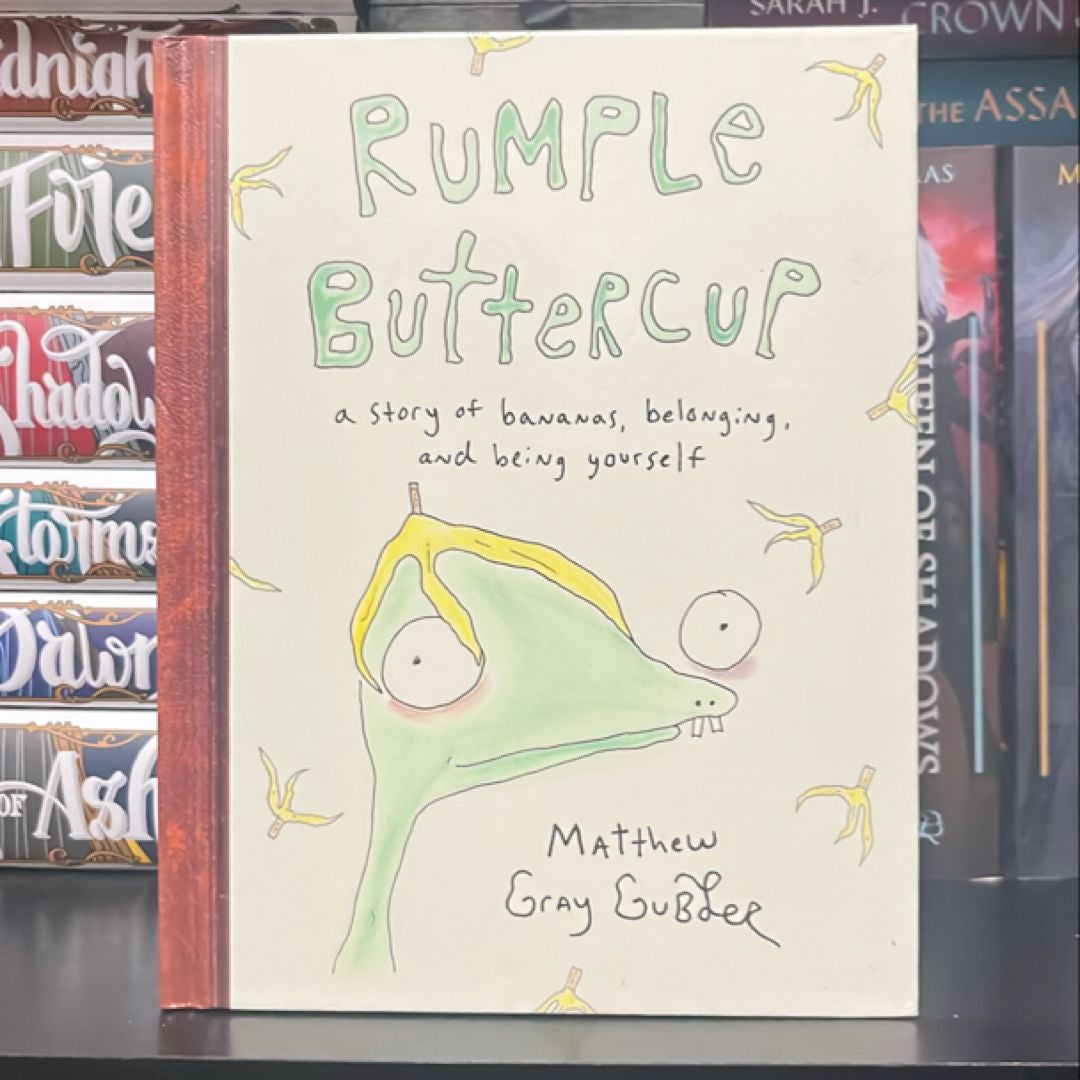 RUMPLE
BUTTERCUP
a story of bananas, belonging,
and being yourself
Matthew
Gray Gubler
Fire
OF Ash
SARAH J.
CROWN
THE ASSA
QUEEN OF SHADOWS